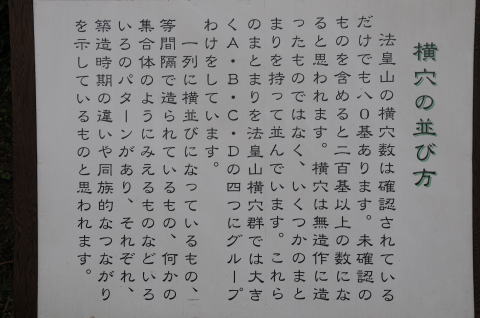 横穴の並び方
法皇山の横穴数は確認されている
だけでも八〇基あります。未確認の
ものを含めると二百基以上の数にな
ると思われます。横穴は無造作に造
ったものではなく、いくつかのまと
まりを持って並んでいます。これら
のまとまりを法皇山横穴群では大き
くA・B・C・Dの四つにグループ
わけをしています。
一列に横並びになっているもの、
等間隔で造られているもの、何かの
集合体のようにみえるものなどいろ
いろのパターンがあり、それぞれ、
築造時期の違いや同族的なつながり
を示しているものと思われます。